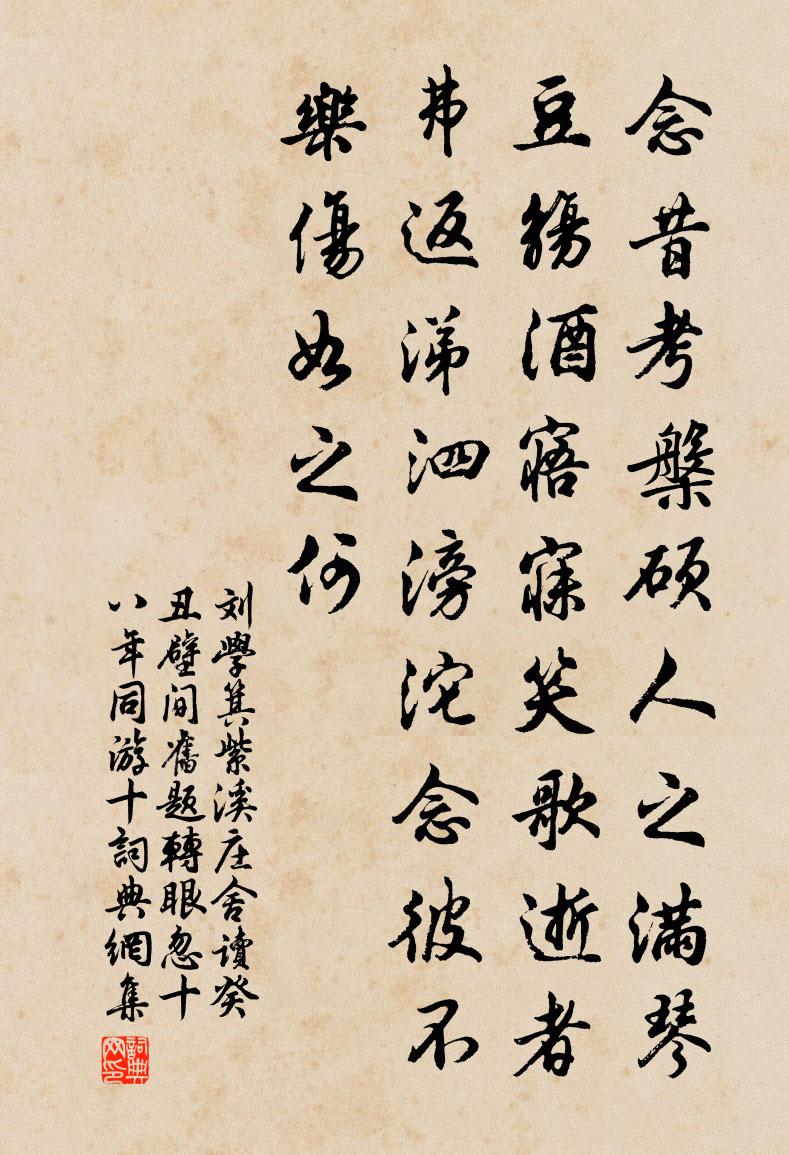 念昔考槃硕人之满琴
豆觞酒寤寐笑歌逝者
弗返涕泗滂沱念彼不
樂傷如之何
刘學箕紫溪庄舍讀癸
丑壁间舊题轉眼忽十
八年同游十詞典網集
詞典网印